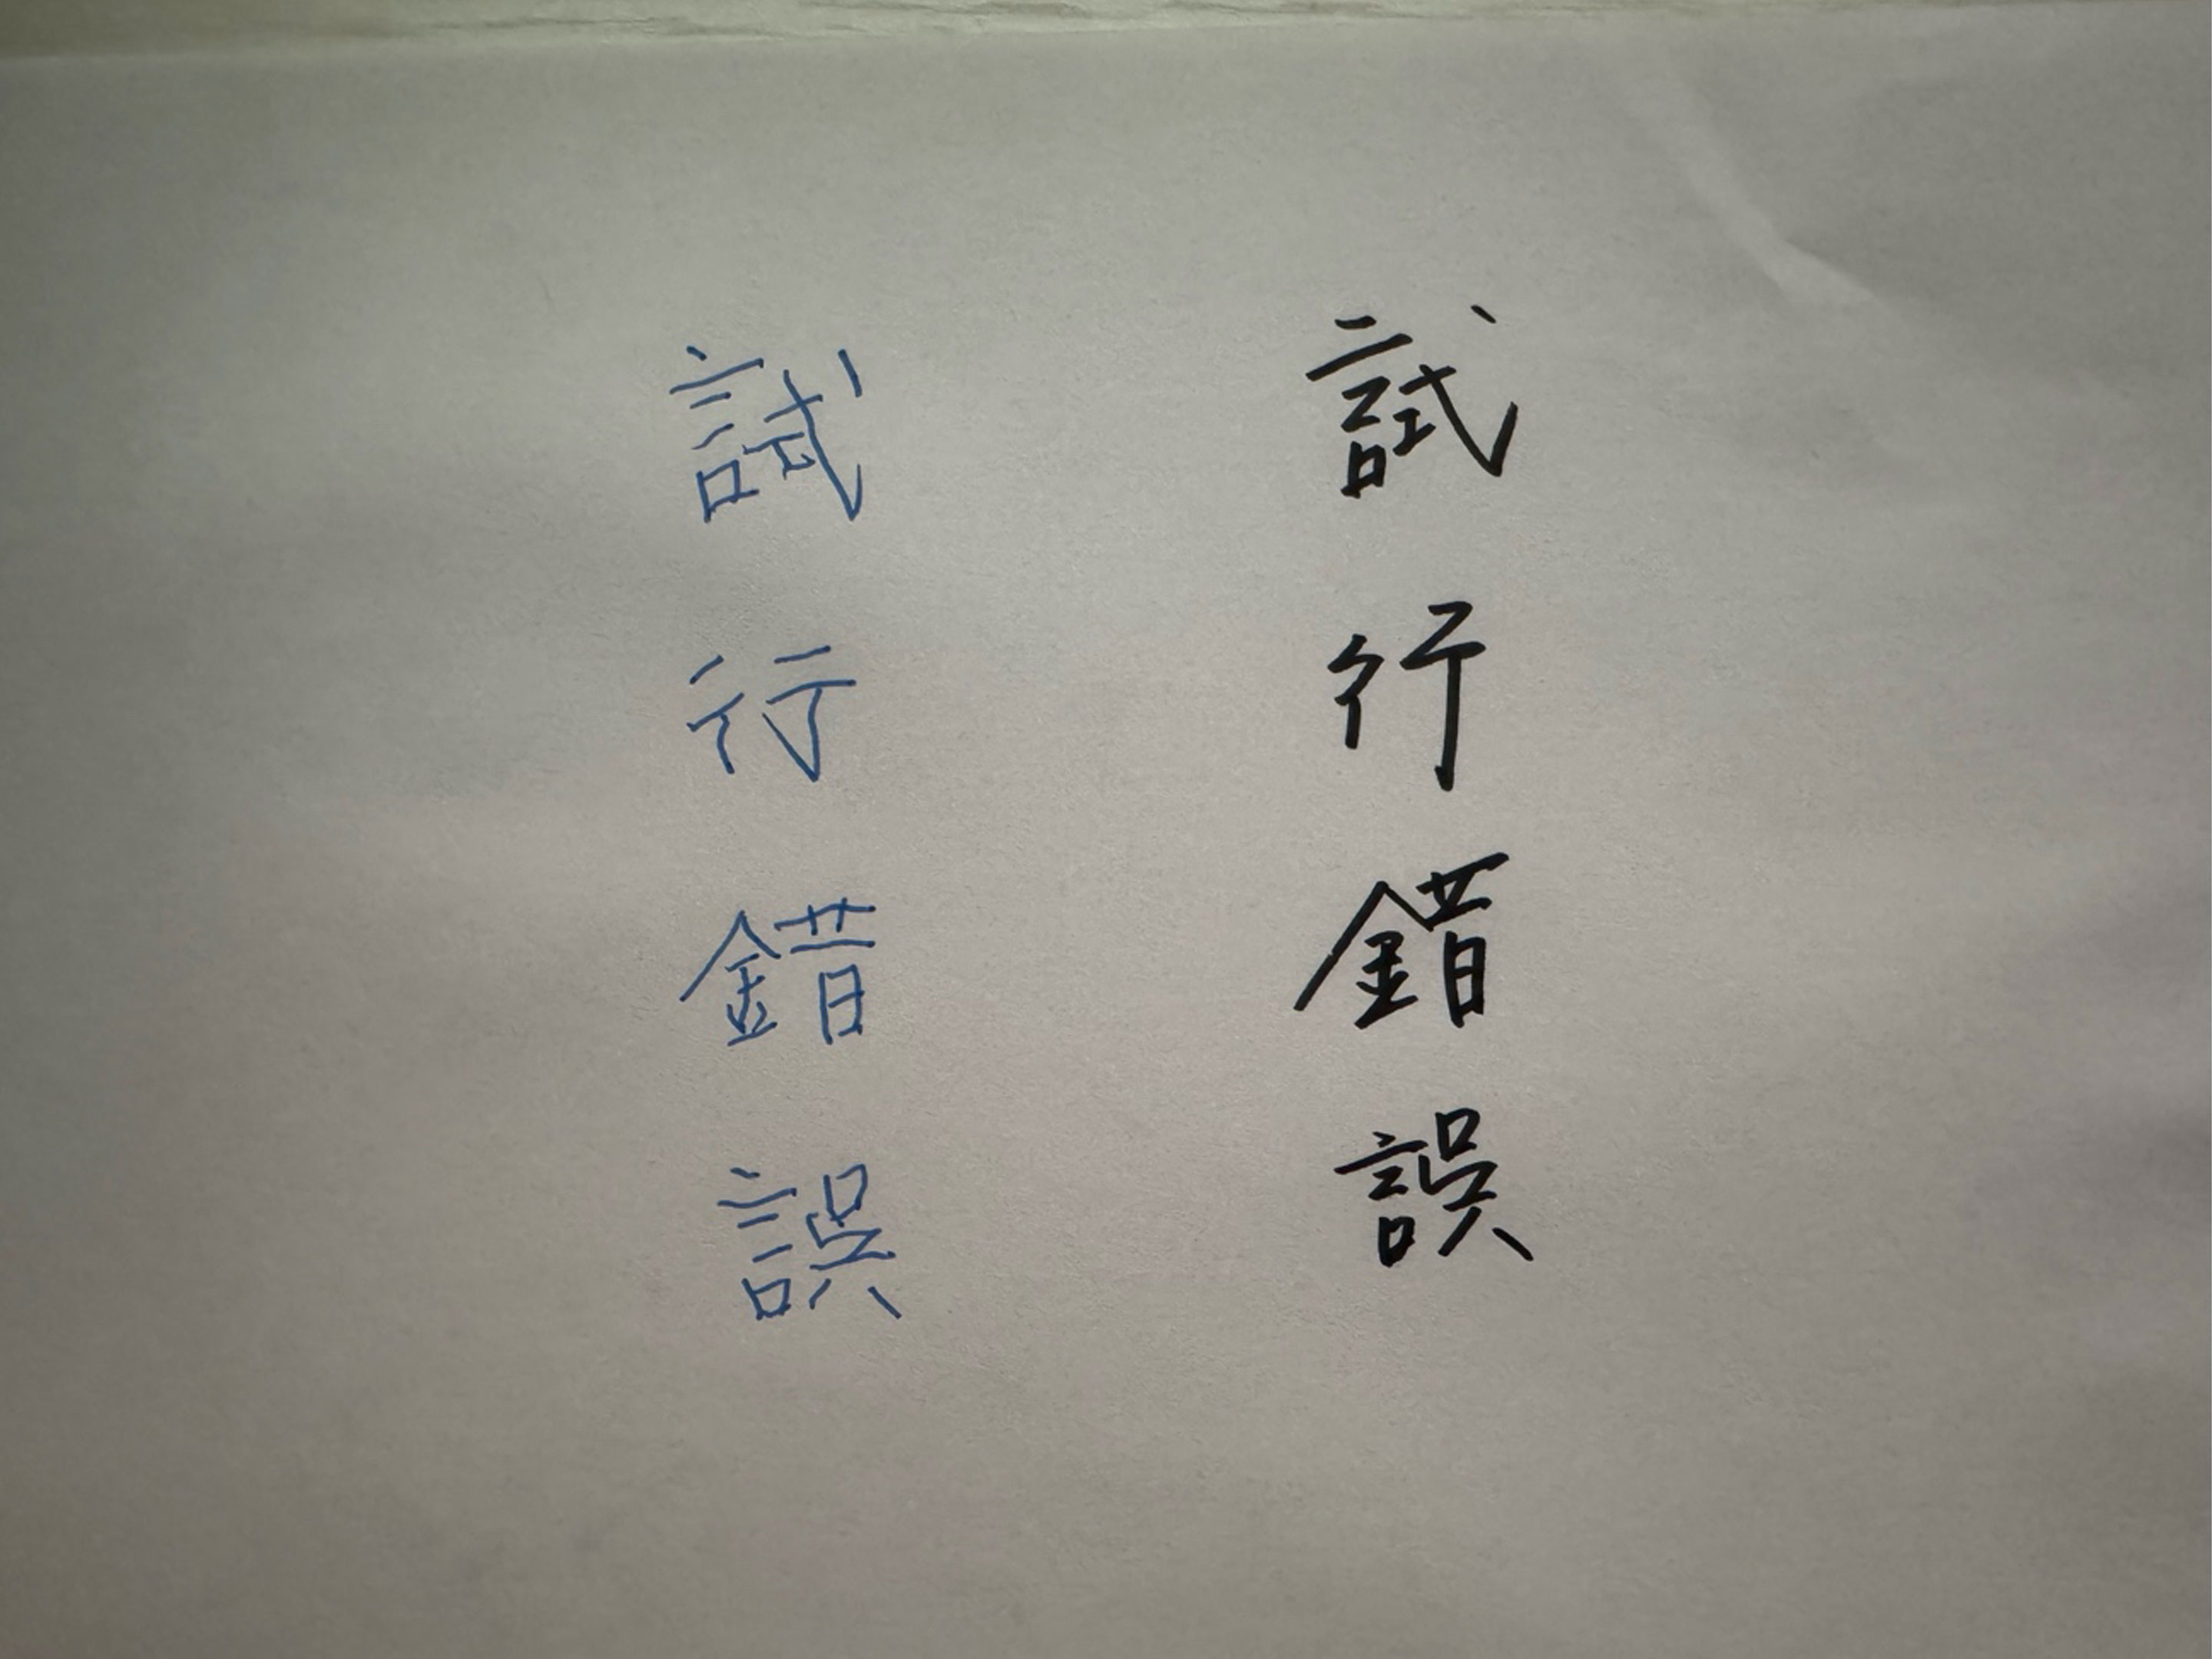 試行錯誤
試行錯誤